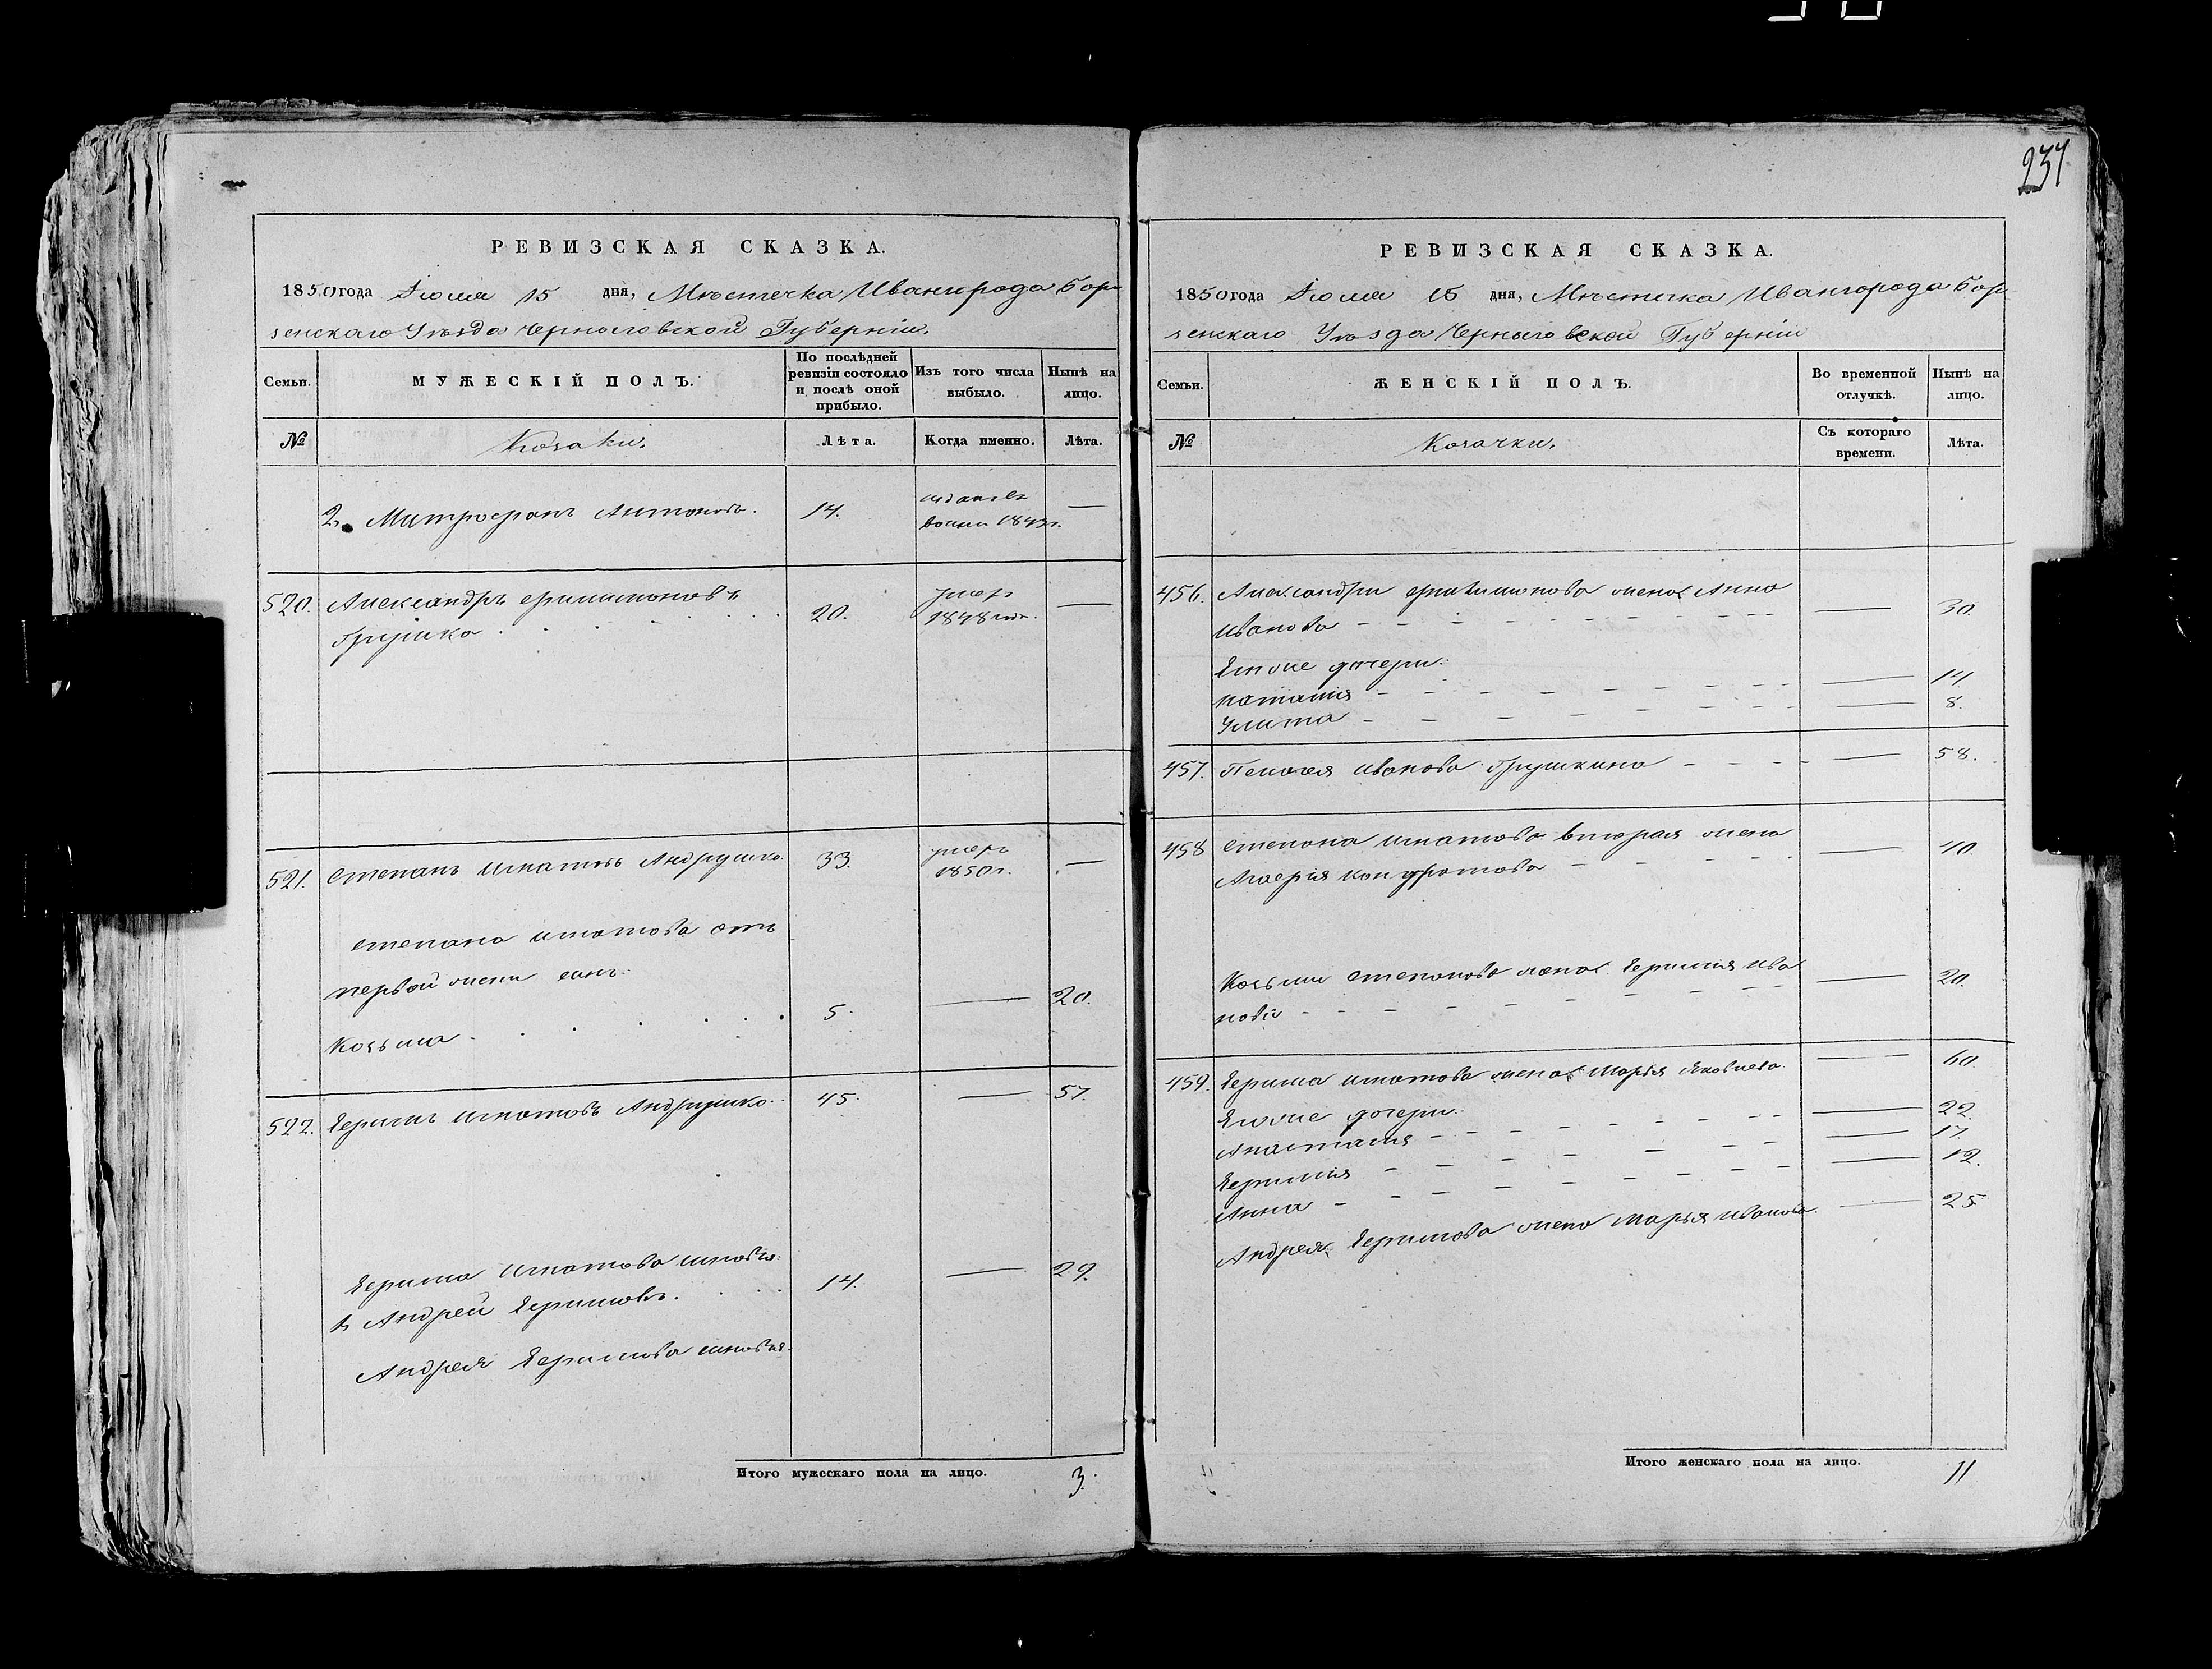 237
РЕВИЗСКАЯ СКАЗКА.
1850 года Іюля 15 дня, Мѣстечка Ивангорода Бор-
зенскаго Уѣзда Черниговской Губерніи.
Семьи. МУЖЕСКІЙ ПОЛЪ. По послѣдней ревизіи состояло и послѣ оной прибыло. Изъ того числа выбыло. Нынѣ на лицо.
№ Козаки. Лѣта. Когда именно. Лѣта.
2. Митрофанъ Антоновъ. 14. —
520. Александръ Филимоновъ 20. умеръ 1848 —
Грушко
521. Степанъ Игнатовъ Андрушко. 33. умеръ 1850 г. —
Степана Игнатова отъ
первой жены сынъ:
Козьма 5. — 20.
522. Ефимъ Игнатовъ Андрушко. 45. — 57.
Ефима Игнатова сыновья:
1. Андрей Ефимовъ. 14. — 29.
Андрея Ефимова сыновья:
Итого мужескаго пола на лицо. 3.
РЕВИЗСКАЯ СКАЗКА.
1850 года Іюля 15 дня, Мѣстечка Ивангорода Бор-
зенскаго Уѣзда Черниговской Губерніи
Семьи. ЖЕНСКІЙ ПОЛЪ. Во временной отлучкѣ. Нынѣ на лицо.
№ Козачки. Съ котораго времени. Лѣта.
456. Александра Филимонова жена Анна
Иванова — 30.
Его же дочери:
Наталія — 14
Улита — 8.
457. Пелагея Иванова Грушкина — 58.
458 Степана Игнатова вторая жена
Кондратова — 40
Козьмы Степанова жена Ефимія Ива
нова — 20.
459. Ефима Игнатова жена Марья Яковлева. — 60.
Его же дочери:
Анастасія — 22.
Ефимія — 17.
Анна — 12.
Андрея Ефимова жена Марья Иванова. — 25
Итого женскаго пола на лицо. 11